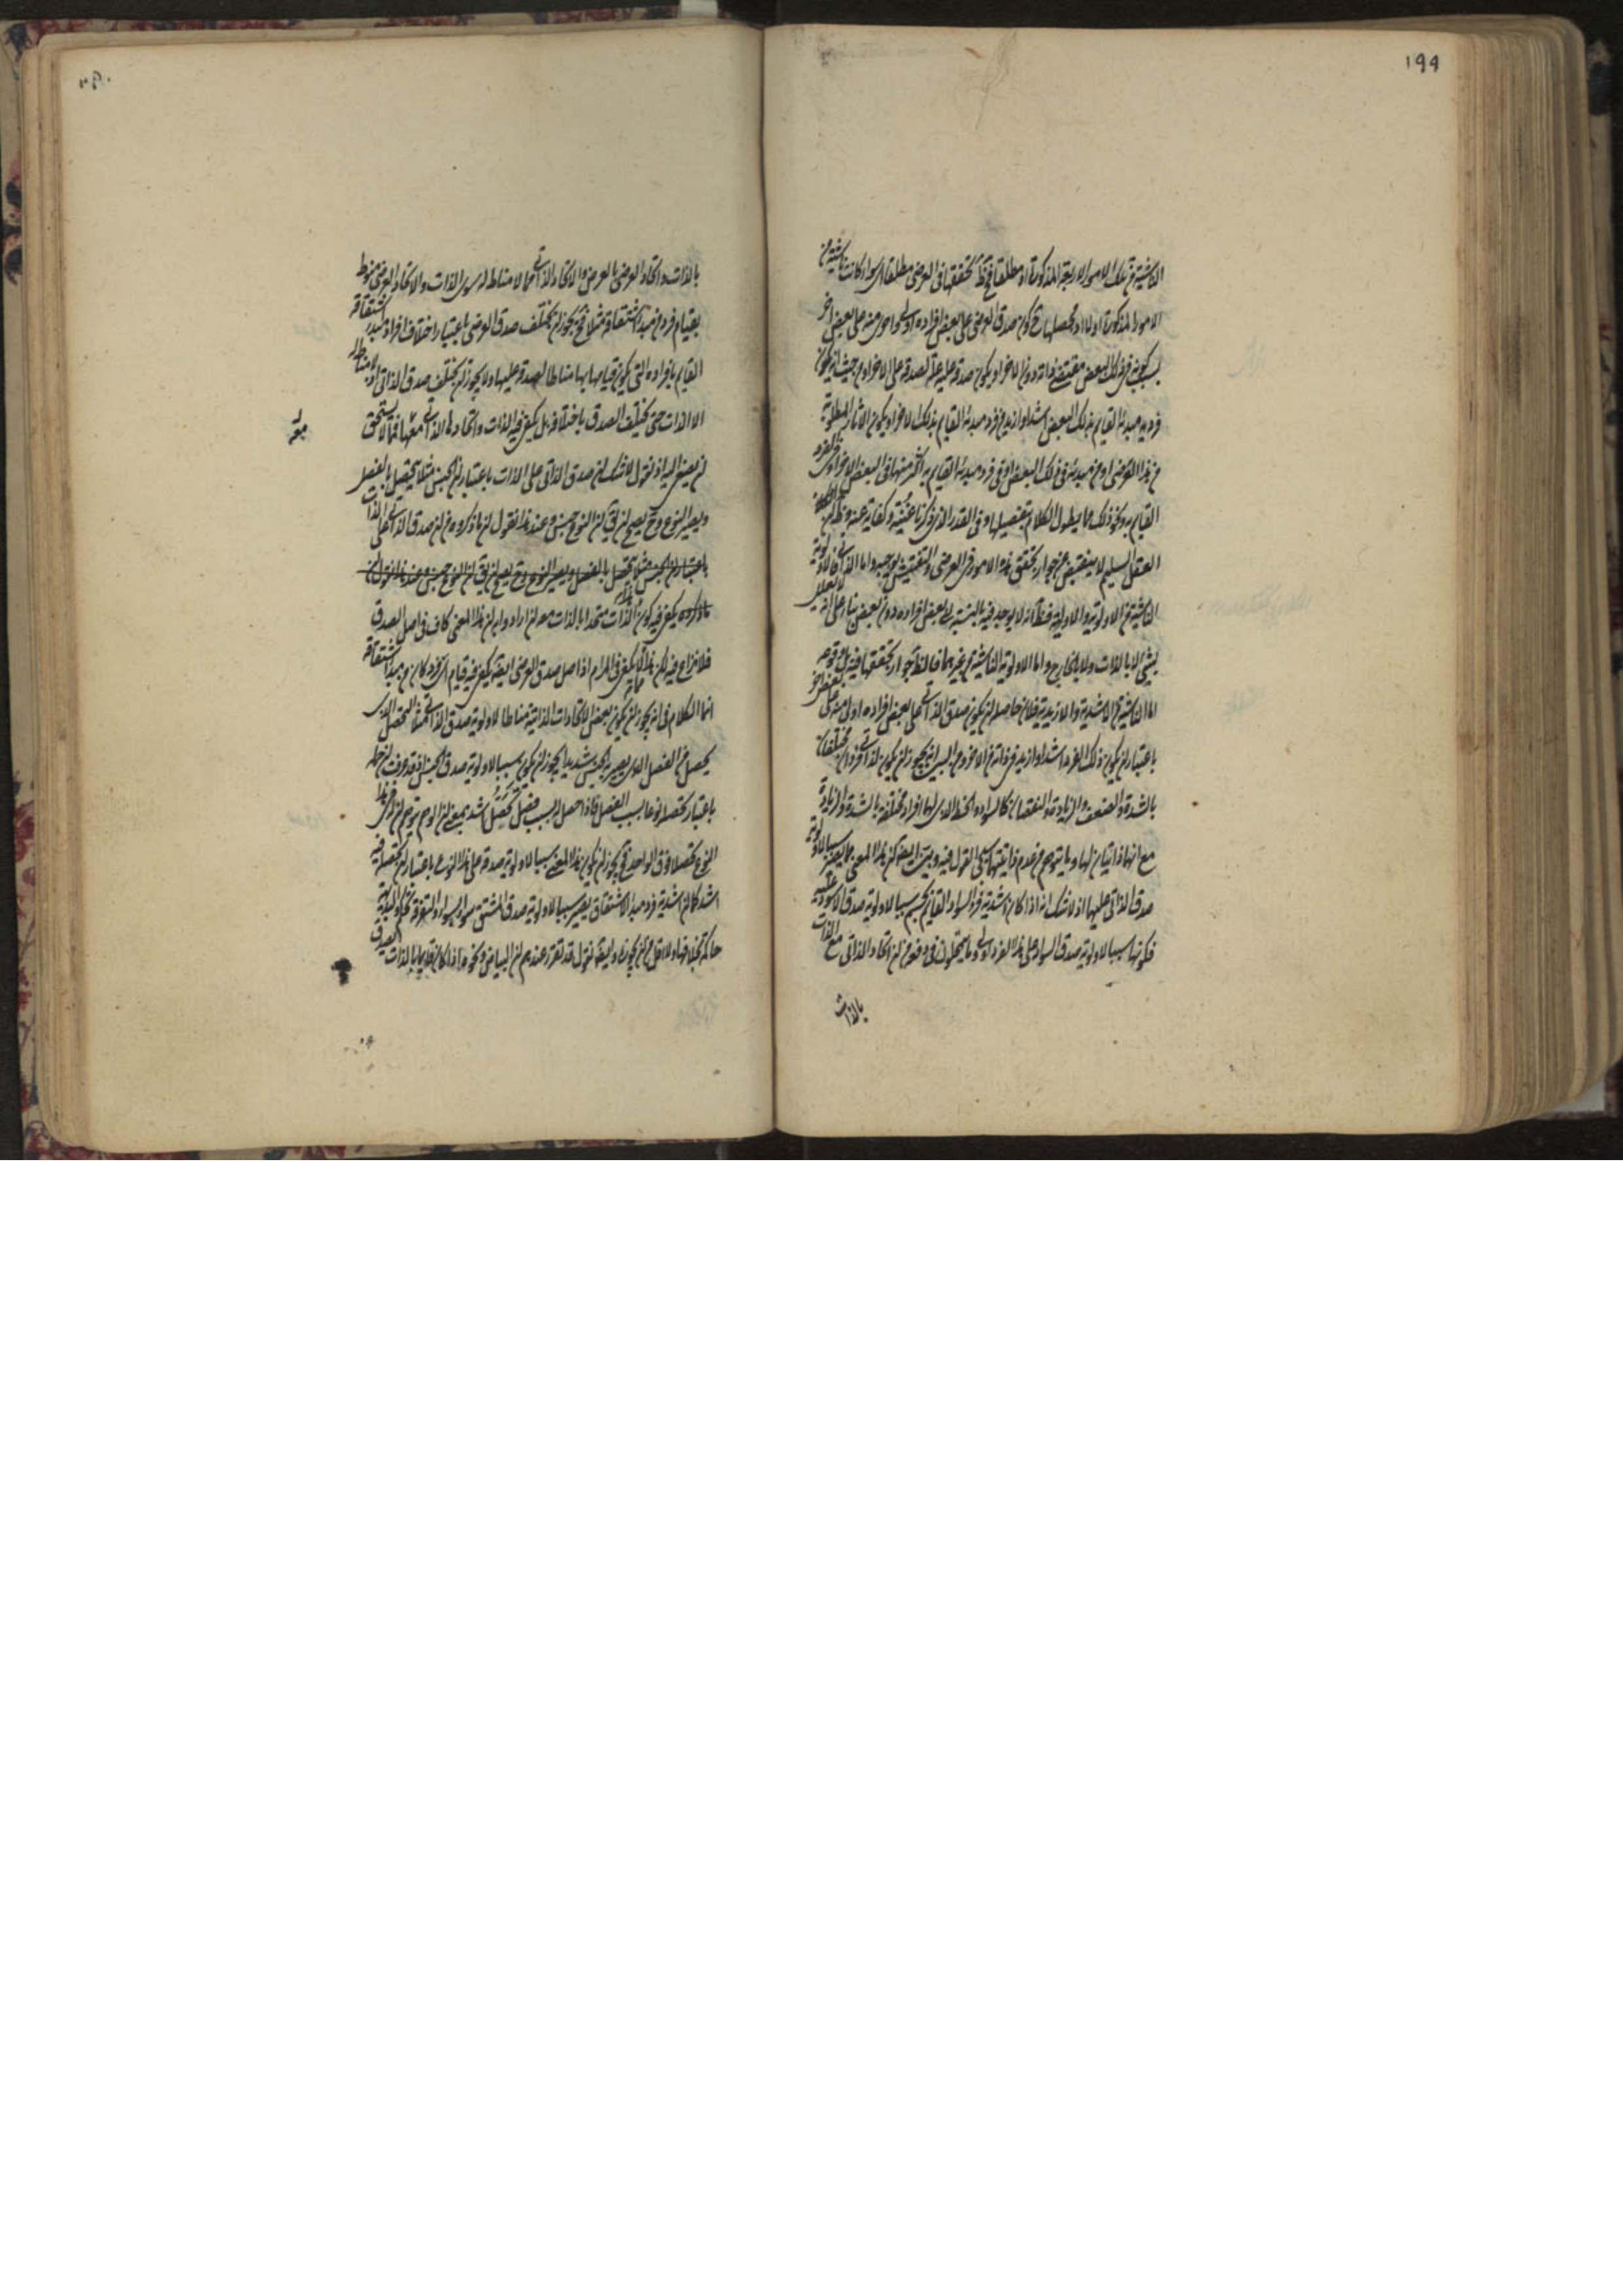 ١٩٩
الناشية من تلك الامور الاربعة المذكورة او مطلقا فح نقط تحققها في العرضي مطلقا اي سواء كانت ناشية من
الامور المذكورة اولا اذ محصلها ح كون صدق العرضي على بعض افراده اولى واحرى منه على بعض اخر
بسبب كونه في ذلك البعض مقتضى ذاته دون الاخر او يكون صدقه عليه علة لصدقه على الاخر او من حيث ان يكون
فرد مبدئه القايم بذلك البعض اشد او ازيد من فرد مبدئه القايم بذلك الاخر او يكون الاثار المطلوبة
من هذا العرضي او من مبدئه في ذلك البعض او في فرد مبدئه القايم به اكثر منها في البعض الاخر او في الفرد
القايم به ونحو ذلك مما يطول الكلام بتفصيلها وفي القدر الذي ذكرنا غنية وكفاية عنه
العقل السليم لا ينقبض عن جواز تحقق هذه الامور في العرضي والتفتيش يوجبه واما الذاتي فالاولوية
الناشية من الاولوية والاولية فظ انه لا يوجد فيه بالنسبة الى بعض افراده دون بعض بناء على انه لا يعلل
بشيء لا بالذات ولا بالخارج واما الاولوية الناشية من غيرهما فالظ جواز تحققها فيه بل وقوعه
اما الناشية من الاشدية والازيدية فلان حاصله ان يكون صدق الذاتي على بعض افراده اولى منه على بعض اخر
باعتبار ان يكون ذلك الفرد اشد او ازيد في ذاته من الاخر ومن البين انه يجوز ان يكون لذاتي فردان مختلفان
بالشدة والضعف والزيادة والنقصان كالسواد والخط الذي لها افراد مختلفة بالشدة والزيادة
مع انها ذاتيان لها وما يتوهم من عدم ذاتيتها سيجيء القول فيه وبين ايضا ان هذا المعنى مما يصير سببا لاولوية
صدق الذاتي عليها اذ لا شك انه اذا كان اشدية فرد السواد القايم بجسم سببا لاولوية صدق الاسود عليه
فكونها سببا لاولوية صدق السواد على هذا الفرد اولى وما يتمحلون في دفعه من ان اتحاد الذاتي مع الذات
بالذات
بالذات واتحاد العرضي بالعرض والاتحاد الذاتي مما لا مناط له سوى الذات والاتحاد العرضي منوط
بقيام فرد من مبدء اشتقاقه مثلا فح يجوز ان يختلف صدق العرضي باعتبار اختلاف افراد مبدء اشتقاقه
القايم بافراده التي يكون قيامها بها مناطا لصدقه عليها ولا يجوز ان يختلف صدق الذاتي اذ لا مناط له
الا الذات حتى يختلف الصدق باختلافه بل يكفي فيه الذات واتحادها الذاتي معها فمما لا يستحق
ان يصغى اليه اذ نقول لا شك ان صدق الذاتي على الذات باعتبار ان الجنس مثلا يتحصل بالفصل
ويصير النوع وح يصح ان يق ان النوع جنس وعند هذا نقول ان ما ذكروه من ان صدق الذاتي على الذات
باعتبار ان الجنس مثلا يتحصل بالفصل ويصير النوع وح يصح ان يق ان النوع جنس وعند هذا نقول ان
ما ذكروه يكفي فيه كون الذات متحدا بالذات معه ان ارادوا به ان هذا المعنى كاف في اصل الصدق
فلا نزاع فيه لكن هذا لا يكفي في المرام اذ اصل صدق العرضي ايضا يكفي فيه قيام اي فرد كان من مبدء اشتقاقه
انما الكلام في انه يجوز ان يكون بعض الاتحادات الذاتية مناطا لاولوية صدق الذاتي مثلا التحصل الذي
يحصل من الفصل الذي يصير به الجنس شديدا يجوز ان يكون سببا لاولوية صدق الجنس اذ قد عرفت ان حمله
باعتبار تحصله نوعا بسبب الفصل فاذا حصل له بسبب فصل تحصل اشد
النوع تحصلا فوق الواحد فح يجوز ان يكون هذا المعنى سببا لاولوية صدقه على هذا النوع باعتبار ان تحصله فيه
اشد كما ان اشدية فرد مبدء الاشتقاق يصير سببا لاولوية صدق المشتق سواء بسواء والتفرقة تحكم والبديهة
حاكمة بخلافها ولا اقل من ان يجوزه وايضا نقول قد تقرر عندهم ان البياض ونحوه اذا كان قايما بالذات يصدق